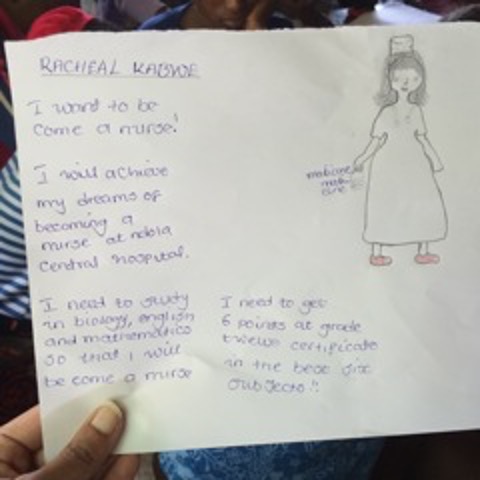 RACHEAL KABWE
I want to be
come a nurse!
I will achieve
my dreams of
becoming a
nurse at ndola
central hospital.
I need to study
in biology, english
and mathematics
so that I will
be come a nurse
I need to get
6 points at grade
twelve certificate
in the best six
subjects!!